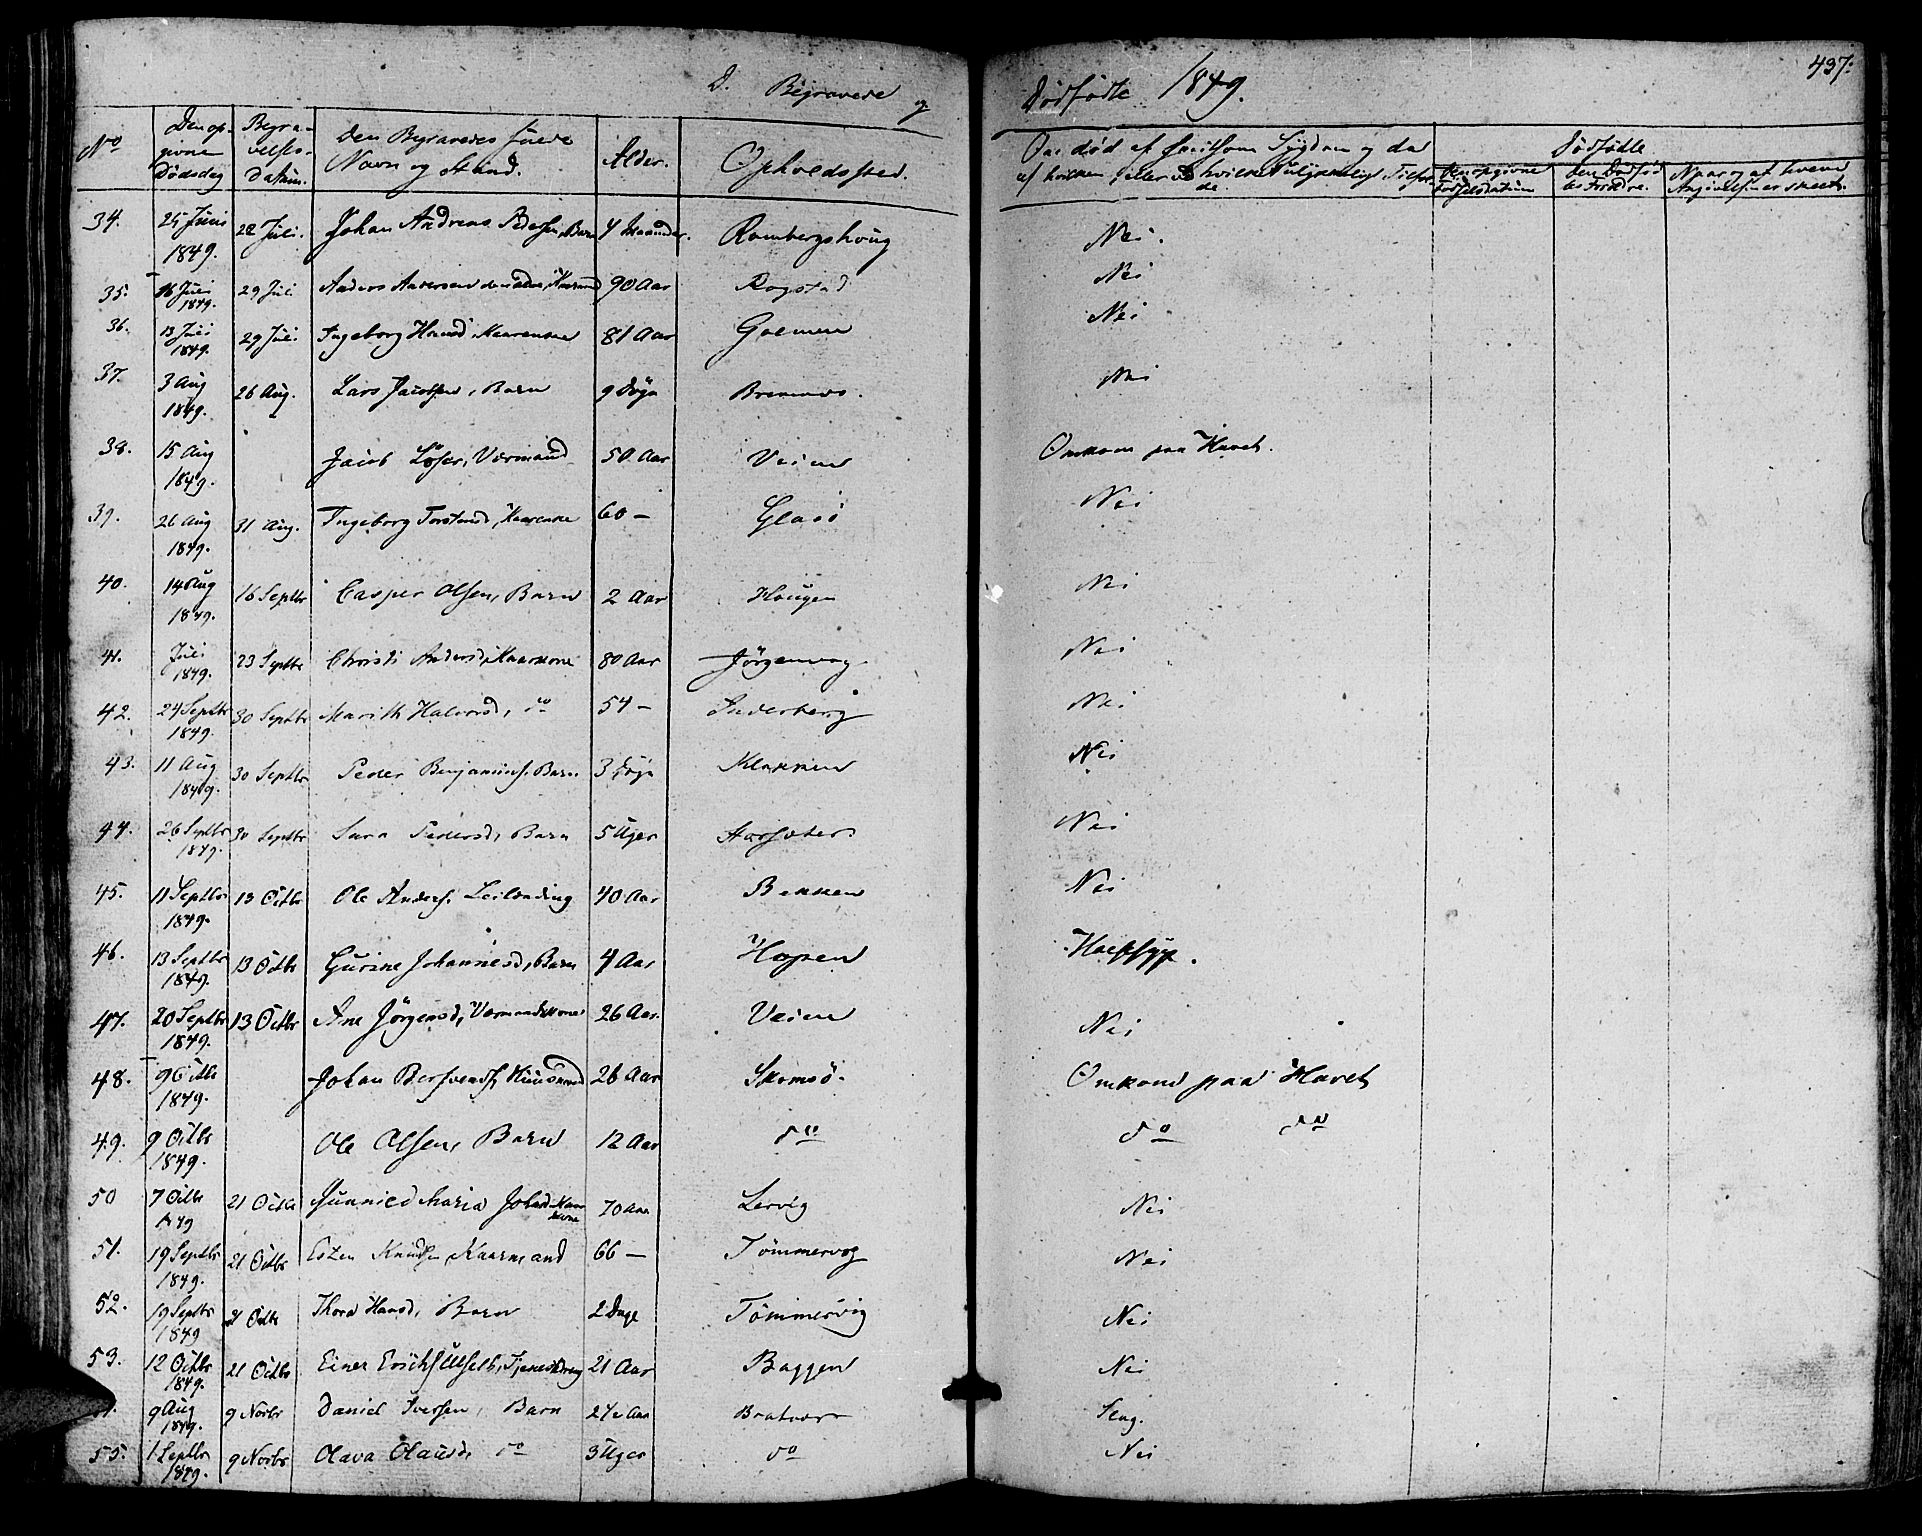 D. Begravede og Dødfødte 1849. 437.
No | Den opgivne Dødsdag | Begravelses-Datum. | Den Begravedes fulde Navn og Stand. | Alder. | Opholdssted. | Om død af smitsom Sygdom og da af hvilken | Dødfødte
Den opgivne Fødselsdatum | Den Dødfødtes Forældre. | Naar og af hvem Angivelsen er skeet.
34. | 25 Juni 1849. | 22 Juli. | Johan Andreas Pedersen, Barn | 4 Maaneder. | Rambergshoug | Nei.
35. | 16 Juli 1849. | 29 Juli | Anders Andersen | 90 Aar | Rogstad | Nei
36. | 13 Juli 1849. | 29 Juli | Ingeborg Hansd, Kaarenke | 81 Aar | Goemen | Nei
37. | 3 Aug 1849. | 26 Aug. | Lars Jacobsen, Barn | 9 Døgn | Bremnes. | Nei
38. | 15 Aug 1849. | Jacob Löser, Værmand | 50 Aar | Veien | Omkom paa Havet.
39. | 26 Aug 1849. | 31 Aug. | Ingeborg Torstensd, Kaarenke | 60 — | Glasö | Nei
40. | 14 Aug 1849. | 16 Septbr | Casper Olsen, Barn | 2 Aar | Hougen | Nei
41. | Juli 1849. | 23 Septbr | Christi Andersd, Kaarkone | 80 Aar | Jörgenvaag | Nei
42. | 24 Septbr 1849. | 30 Septbr | Marith Halvorsd, do | 54 — | Inderberg | Nei
43. | 11 Aug 1849. | 30 Septbr | Peder Benjamins. Barn | 3 Døgn | Klakken | Nei
44. | 26 Septbr 1849. | 30 Septbr | Sara Pedersd, Barn | 5 Uger | Aarsæter. | Nei
45. | 11 Septbr 1849. | 13 Octbr | Ole Anders. Leilænding | 40 Aar | Bekken | Nei
46. | 13 Septbr 1849. | 13 Octbr | Gurine Johannesd, Barn | 4 Aar | Hopen
47. | 20 Septbr 1849. | 13 Octbr | Ane Jörgensd, Værmandskone | 26 Aar. | Veien | Nei
48. | 9 Octbr 1849. | Johan Bersvends, Huusmand | 26 Aar | Skomsö. | Omkom paa Havet
49. | 9 Octbr 1849. | Ole Olsen, Barn | 12 Aar | do | do do
50 | 7 Octbr 1849 | 21 Octbr | Gunnild Maria Johnsd Kaarkone | 70 Aar | Lervig | Nei
51. | 19 Septbr 1849. | 21 Octbr | Esten Knudsen, Kaarmand | 66 — | Tömmervog | Nei
52. | 19 Septbr 1849 | 21 Octbr | Thora Hansd, Barn | 2 Dage | Tömmervig | Nei
53. | 12 Octbr 1849. | 21 Octbr | Einer Ericks. | 21 Aar | Baggen | Nei
9 Aug 1849. | 9 Novbr | Daniel Iversen, Barn | Bratvær
55. | 1 Septbr 1849. | 9 Novbr | Olava Olausd, do | 3 Uger | do | Nei